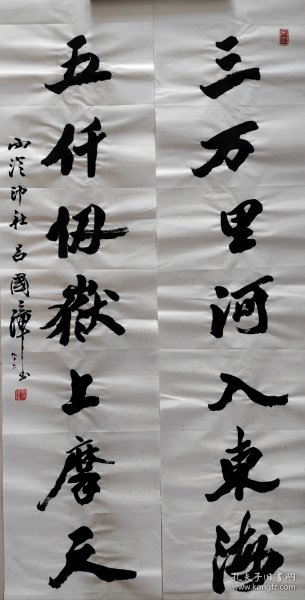 三万里河入東海
五仟仭嶽上摩天
西泠印社 呂國璋 书
孔夫子旧书网